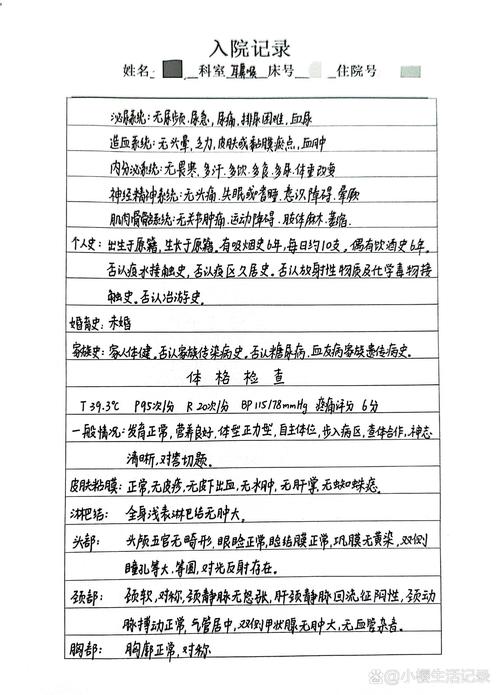 入院记录
姓名 科室 耳鼻喉 床号 住院号
泌尿系统:无尿频.尿急,尿痛,排尿困难,血尿
造血系统:无头晕,乏力,皮肤或黏膜瘀点,血肿
内分泌系统:无畏寒,多汗.多饮.多食.多尿.体重改变
神经精神系统:无头痛.失眠或嗜睡.意识障碍.晕厥
肌肉骨骼系统:无关节肿痛.运动障碍.肢体麻木.萎缩
个人史:出生于原籍,生长于原籍。有吸烟史6年,每日约10支,偶有饮酒史6年。
否认疫水接触史,否认疫区久居史。否认放射性物质及化学毒物接
触史。否认冶游史。
婚育史:未婚
家族史:家人体健。否认家族传染病史。否认糖尿病.血友病家族遗传病史。
体格检查
T 39.3℃ P95次/分 R 20次/分 BP 115/78mmHg 疼痛评分 6分
一般情况:发育正常,营养良好,体型正力型,自主体位,步入病区,查体合作,神志
清晰,对答切题。
皮肤粘膜:正常,无皮疹,无皮下出血,无水肿,无肝掌,无蜘蛛痣。
淋巴结:全身浅表淋巴结无肿大。
头部:头颅五官无畸形,眼睑正常,睑结膜正常,巩膜无黄染,双侧
瞳孔等大.等圆,对光反射存在。
颈部:颈软,对称,颈静脉无怒张,肝颈静脉回流征阴性,颈动
脉搏动正常,气管居中,双侧甲状腺无肿大,无血管杂音。
胸部:胸廓正常,对称
@小樱生活记录